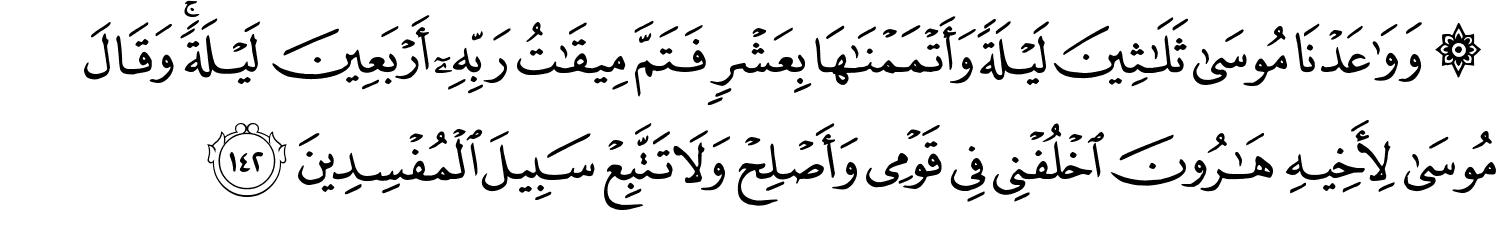 ۞ وَوَٰعَدۡنَا مُوسَىٰ ثَلَٰثِينَ لَيۡلَةٗ وَأَتۡمَمۡنَٰهَا بِعَشۡرٖ فَتَمَّ مِيقَٰتُ رَبِّهِۦٓ أَرۡبَعِينَ لَيۡلَةٗۚ وَقَالَ
مُوسَىٰ لِأَخِيهِ هَٰرُونَ ٱخۡلُفۡنِي فِي قَوۡمِي وَأَصۡلِحۡ وَلَا تَتَّبِعۡ سَبِيلَ ٱلۡمُفۡسِدِينَ ١٤٢